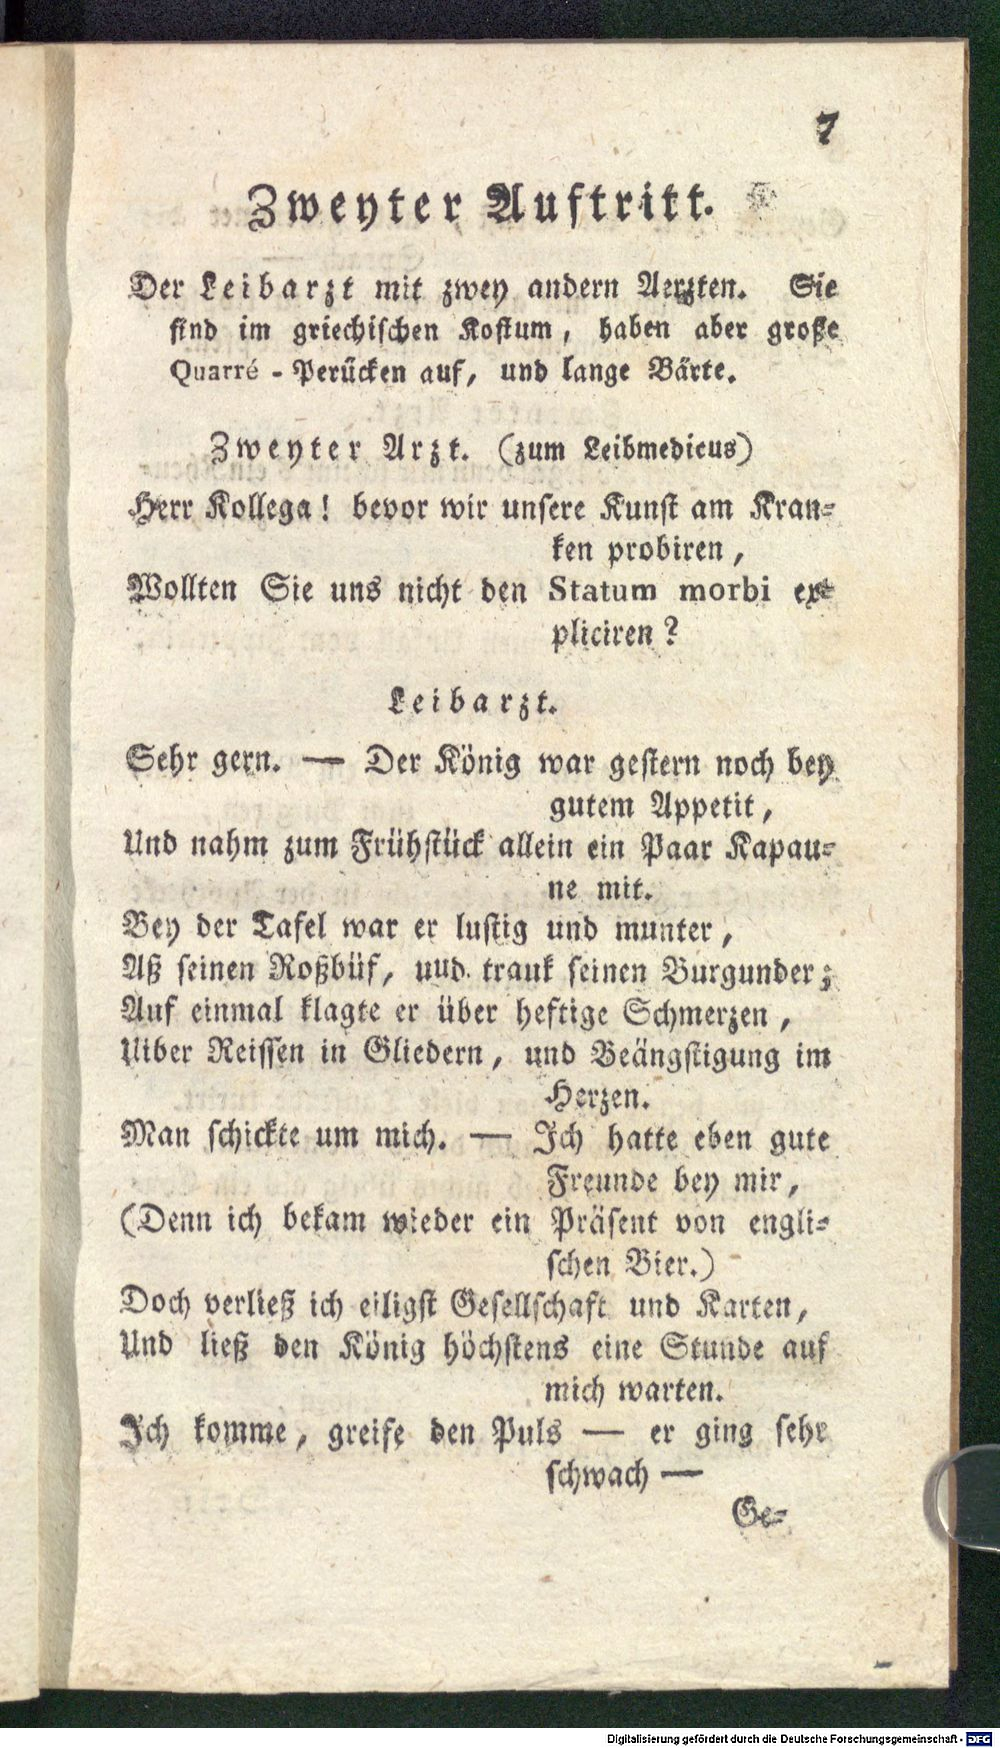 7
Zweyter Auftritt.
Der Leibarzt mit zwey andern Aerzten. Sie
sind im griechischen Kostum, haben aber große
Quarré-Perücken auf, und lange Bärte.
Zweyter Arzt. (zum Leibmedicus)
Herr Kollega! bevor wir unsere Kunst am Kran-
ken probiren,
Wollten Sie uns nicht den Statum morbi ex-
pliciren?
Leibarzt.
Sehr gern. — Der König war gestern noch bey
gutem Appetit,
Und nahm zum Frühstück allein ein Paar Kapau-
ne mit.
Bey der Tafel war er lustig und munter,
Aß seinen Roßbüf, und trank seinen Burgunder;
Auf einmal klagte er über heftige Schmerzen,
Uiber Reissen in Gliedern, und Beängstigung im
Herzen.
Man schickte um mich. — Ich hatte eben gute
Freunde bey mir,
(Denn ich bekam wieder ein Präsent von engli-
schen Bier.)
Doch verließ ich eiligst Gesellschaft und Karten,
Und ließ den König höchstens eine Stunde auf
mich warten.
Ich komme, greife den Puls — er ging sehr
schwach —
Ge-
Digitalisierung gefördert durch die Deutsche Forschungsgemeinschaft - DFG